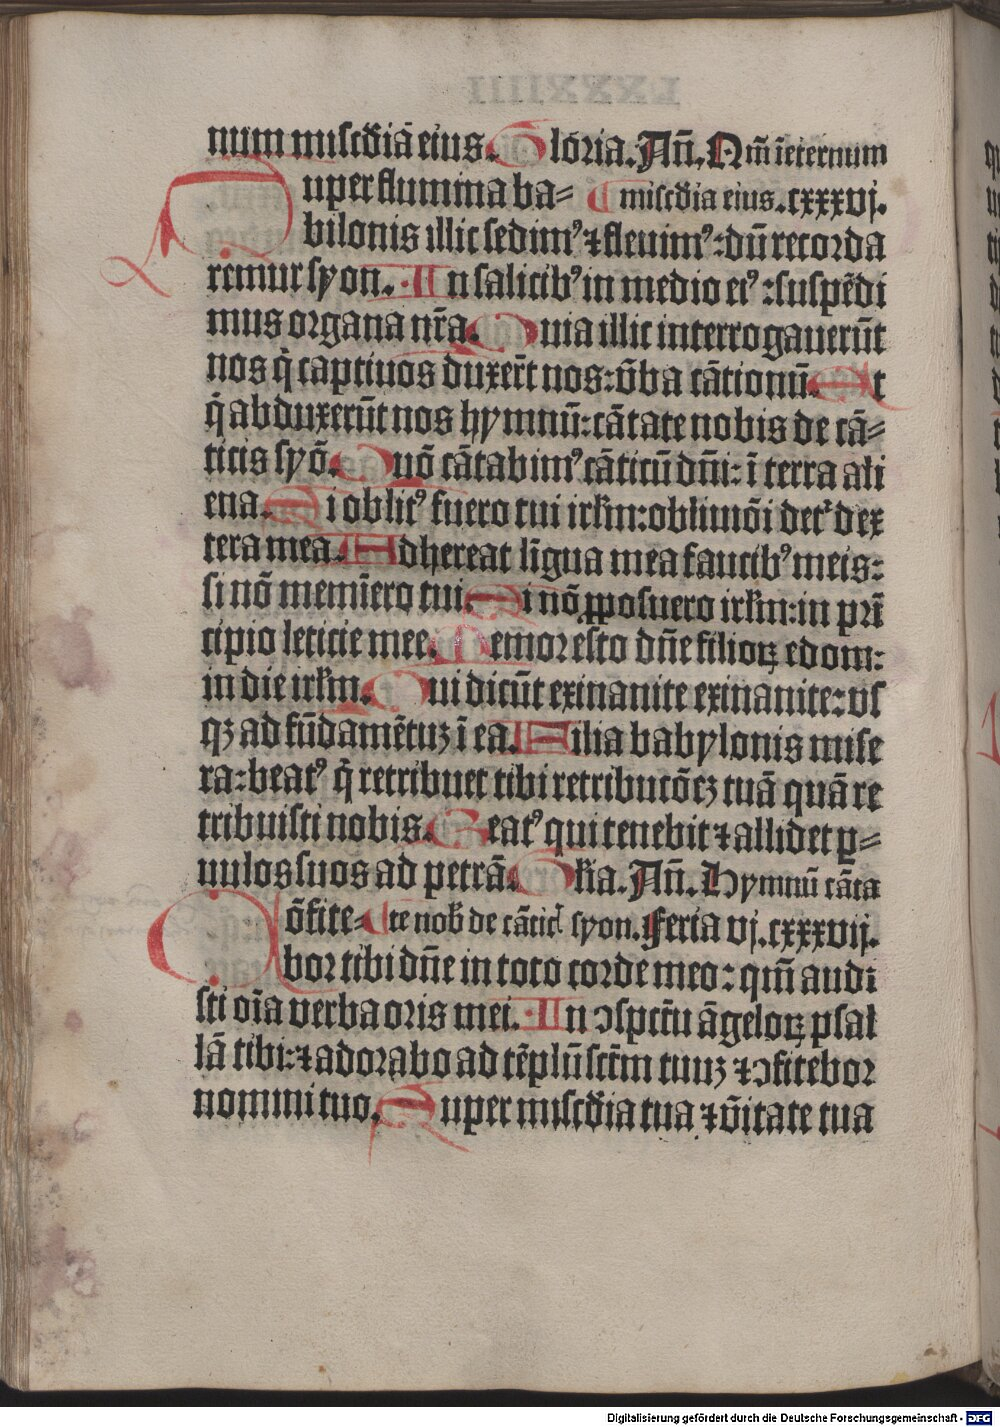 num misc̄diā eius. Gloria. Añ. Qm̄ īeternum
Super flumina ba⸗ misc̄dia eius. cxxxvj.
bilonis illic sedimꝰ ⁊ fleuimꝰ: dū recorda
remur syon. In salicibꝰ in medio eiꝰ: suspēdi
mus organa nr̄a. Quia illic interrogauerūt
nos q̄ captiuos duxer̄t nos: v̄ba cātionū. Et
q̄ abduxerūt nos hymnū: cātate nobis de cā⸗
ticis syō. Quō cātabimꝰ cāticū dn̄i: ī terra ali
ena. Si oblitꝰ fuero tui irlm̄: obliuiōi det᷑ dex
tera mea. Adhereat līgua mea faucibꝰ meis:
si nō memīero tui. Si nō ꝓposuero irlm̄: in prī
cipio leticie mee. Memor esto dn̄e filioꝝ edom:
in die irlm̄. Qui dicūt exinanite exinanite: vs
qꝫ ad fūdamētuꝫ ī ea. Filia babylonis mise
ra: beatꝰ q̄ retribuet tibi retributōeꝫ tuā quā re
tribuisti nobis. Beatꝰ qui tenebit ⁊ allidet ꝑ⸗
uulos suos ad petrā. Glīa. Añ. Hymnū cāta
Cōfite⸗ te nob̄ de cātic̄ syon. Feria vj. cxxxvij.
bor tibi dn̄e in toto corde meo: qm̄ audi
sti oīa verba oris mei. In ↄspctū āgeloꝝ psal
lā tibi: ⁊ adorabo ad tēplū sctm̄ tuuꝫ ⁊ ↄfitebor
nomini tuo. Super misc̄dia tua ⁊ v̄itate tua
Digitalisierung gefördert durch die Deutsche Forschungsgemeinschaft - DFG